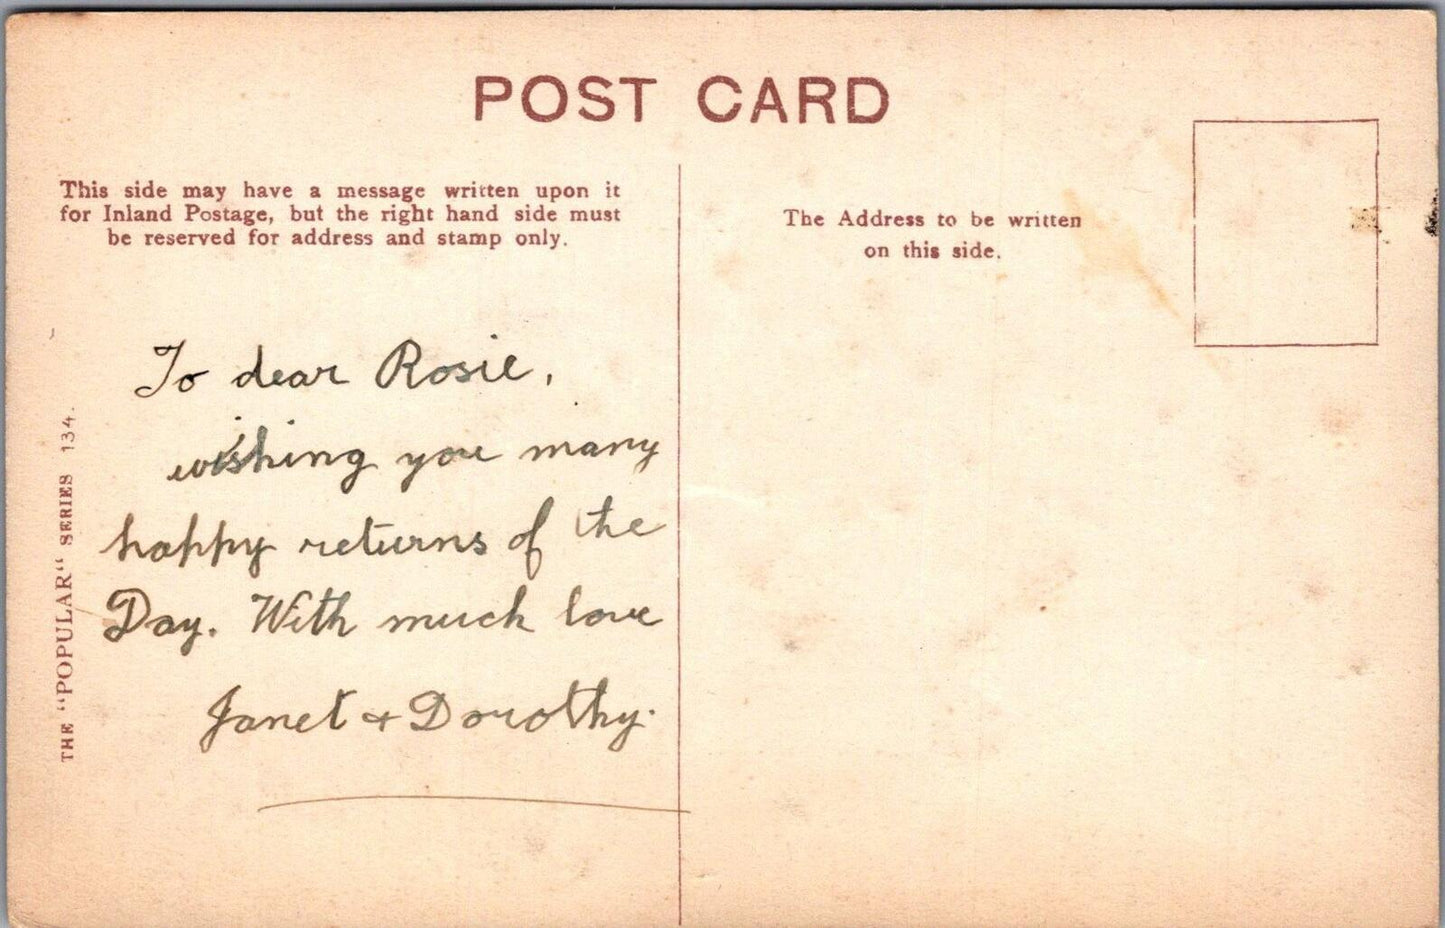 POST CARD
This side may have a message written upon it
for Inland Postage, but the right hand side must
be reserved for address and stamp only.
The Address to be written
on this side.
To dear Rosie,
wishing you many
happy returns of the
Day. With much love
Janet + Dorothy.
THE "POPULAR" SERIES 134.